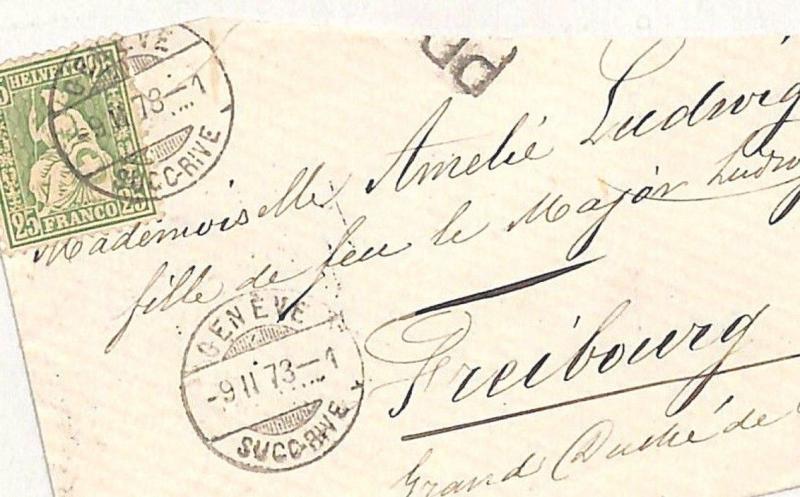 HELVETIA
25 FRANCO 25
GENÈVE
-9 II 73-1
SUCC-RIVE
PD
Mademoiselle Amélie Ludwig
fille de feu le Major Ludwig
Freibourg
Grand Duché de
GENÈVE
-9 II 73-1
SUCC-RIVE